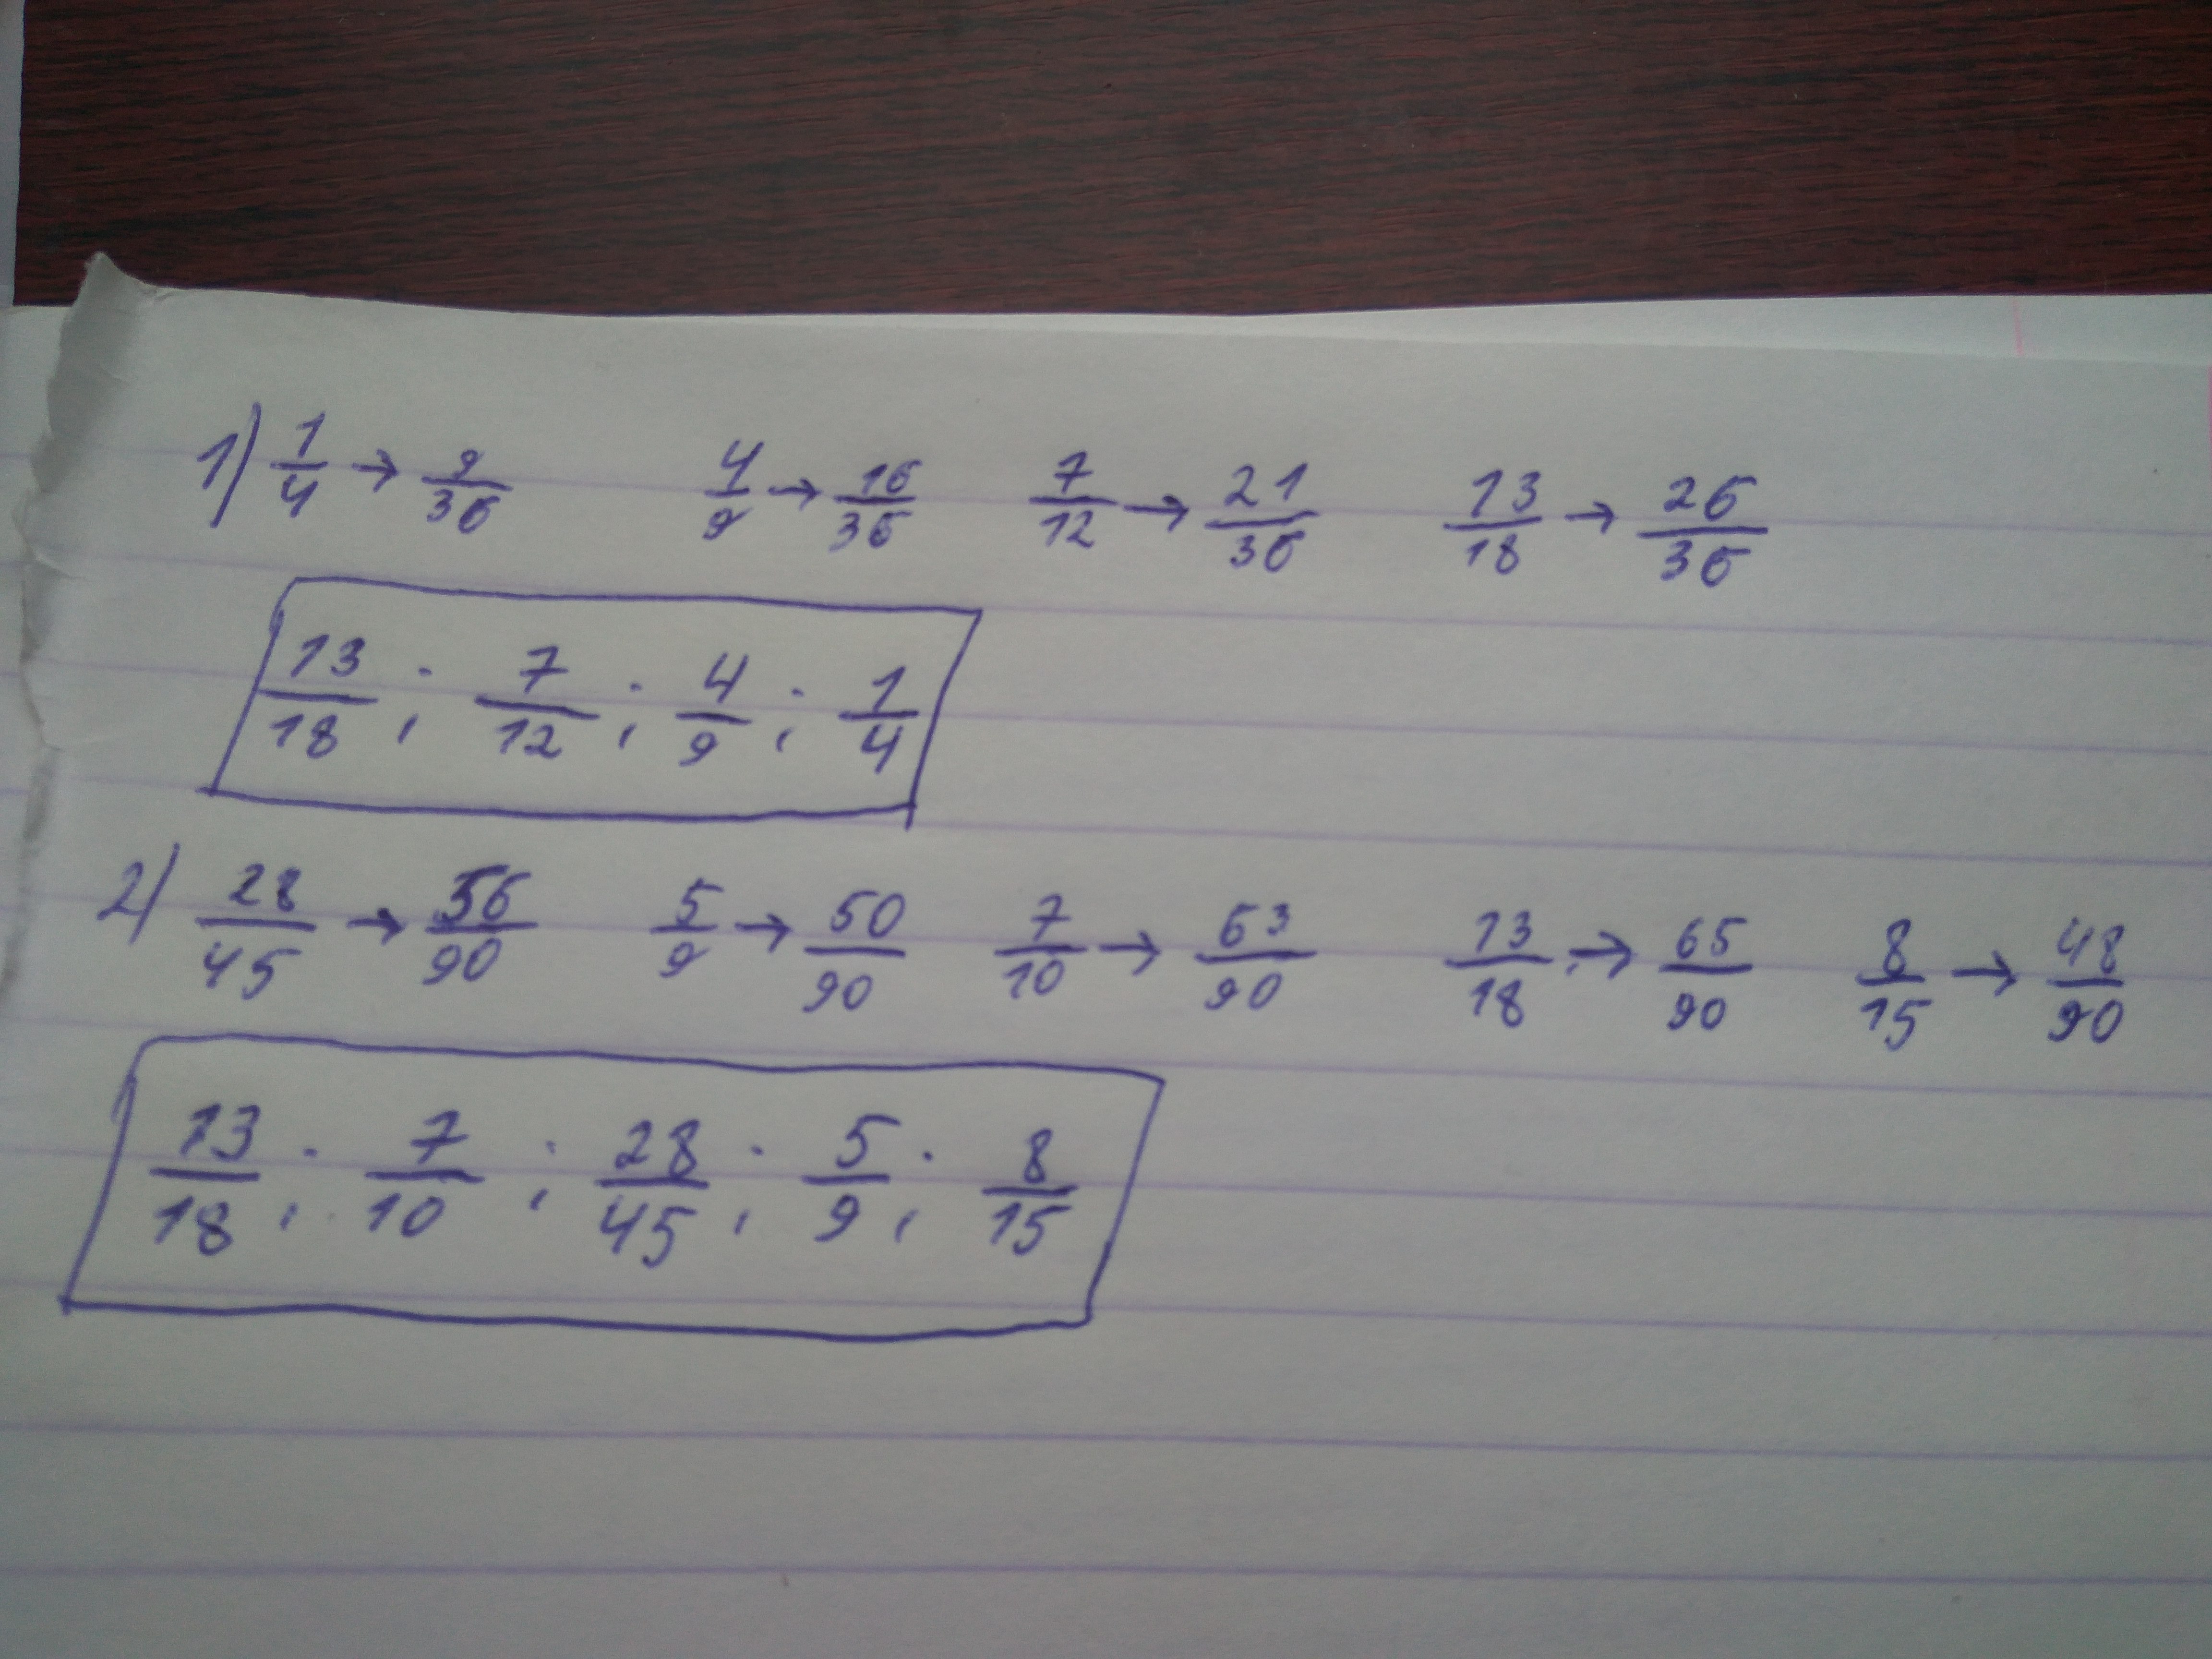 1) 1/4 → 9/36 4/9 → 16/36 7/12 → 21/36 13/18 → 26/36
13/18 ; 7/12 ; 4/9 ; 1/4
2) 28/45 → 56/90 5/9 → 50/90 7/10 → 63/90 13/18 → 65/90 8/15 → 48/90
13/18 ; 7/10 ; 28/45 ; 5/9 ; 8/15